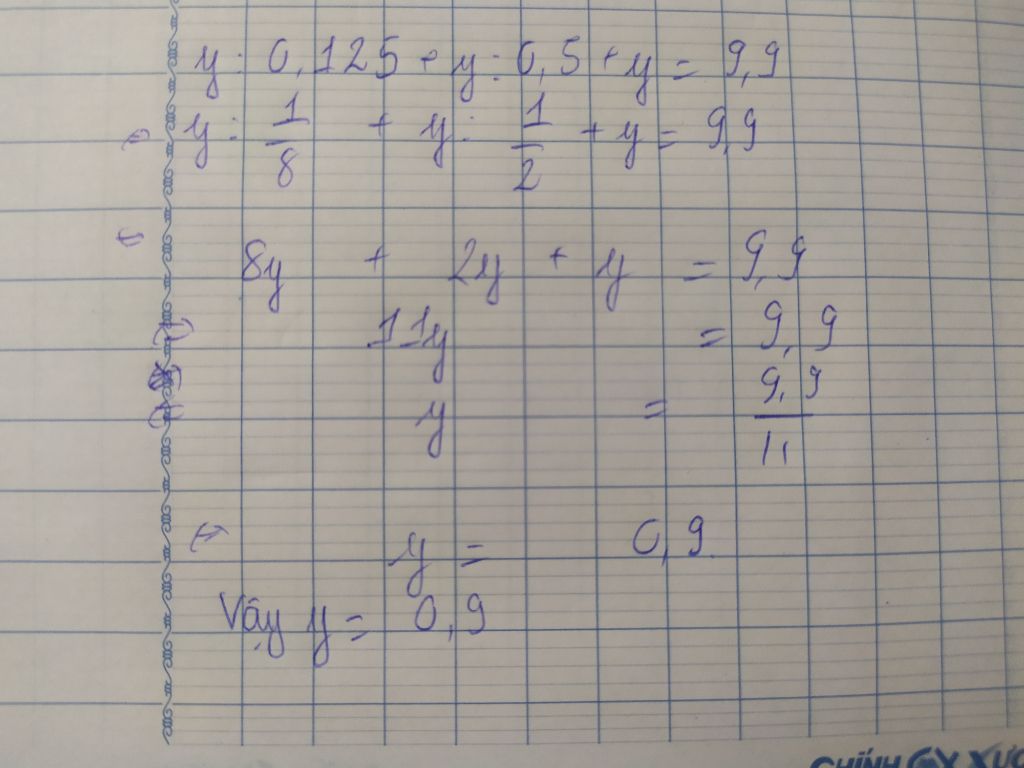 y : 0,125 + y : 0,5 + y = 9,9
y : 1/8 + y : 1/2 + y = 9,9
8y + 2y + y = 9,9
11y = 9,9
y = 9,9/11
y = 0,9
Vậy y = 0,9
CHÍNH